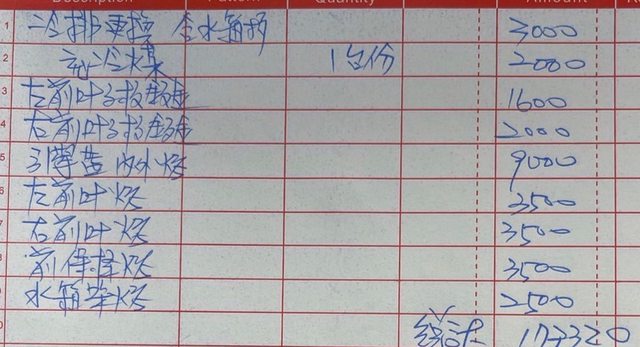 Description Pattern Quantity Amount
1 冷排更换 含水箱拆 3000
2 冷媒 1台份 2000
3 左前叶子板钣金 1600
4 右前叶子板钣金 2000
5 引擎盖内外烤 9000
6 左前叶烤 3500
7 右前叶烤 3500
8 前保桿烤 3500
9 水箱架烤 2500
总计